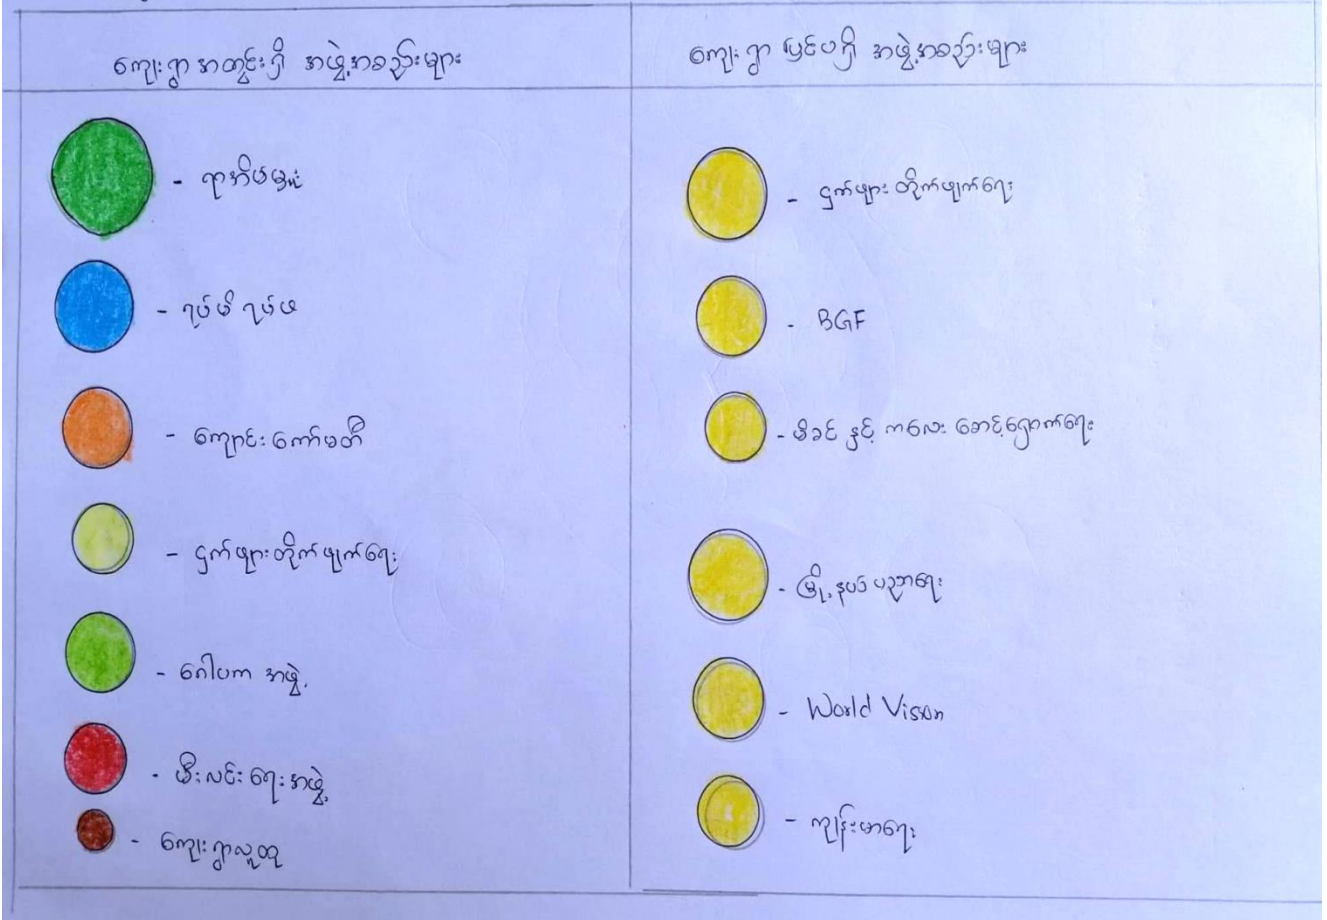 ကျေးရွာ အတွင်းရှိ အဖွဲ့အစည်းများ
- ရာအိမ်မှူး
- ရပ်မိ ရပ်ဖ
- ကျောင်းကော်မတီ
- ငှက်ဖျားတိုက်ဖျက်ရေး
- ဂေါပက အဖွဲ့
- မီးလင်းရေးအဖွဲ့
- ကျေးရွာလူထု
ကျေးရွာ ပြင်ပရှိ အဖွဲ့အစည်းများ
- ငှက်ဖျား တိုက်ဖျက်ရေး
- BGF
- မိခင် နှင့် ကလေး စောင့်ရှောက်ရေး
- မြို့နယ် ပညာရေး
- World Vision
- ကျန်းမာရေး